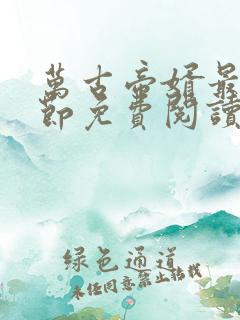 萬古帝婿最
節免費閱讀
绿色通道
未经同意禁止转载